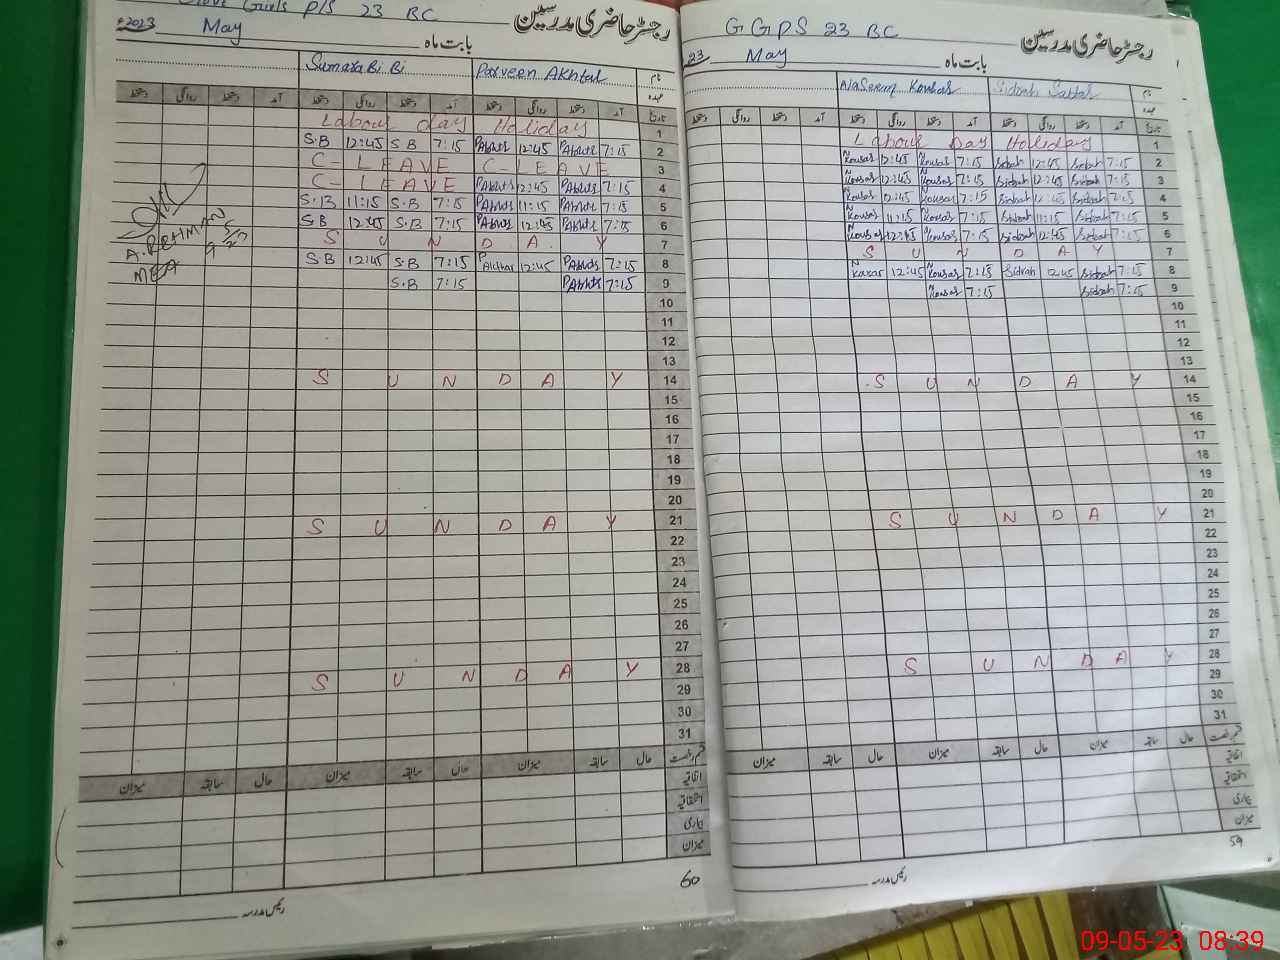 Girls P/S 23 BC
رجسٹر حاضری مدرسین
2023 May بابت ماہ
Sumara Bi Bi Parveen Akhtar نام
عہدہ
دستخط روانگی دستخط آمد دستخط روانگی دستخط آمد دستخط روانگی دستخط آمد تاریخ
Labour day Holiday 1
S.B 12:45 S.B 7:15 PAkhtr 12:45 PAkhtr 7:15 2
C-LEAVE C LEAVE 3
C-LEAVE PAkhtr 12:45 PAkhtr 7:15 4
S.B 11:15 S.B 7:15 PAkhtr 11:15 PAkhtr 7:15 5
S.B 12:45 S.B 7:15 PAkhtr 12:45 PAkhtr 7:15 6
S U N D A Y 7
S.B 12:45 S.B 7:15 P Akhtar 12:45 PAkhtr 7:15 8
S.B 7:15 PAkhtr 7:15 9
10
11
12
13
S U N D A Y 14
15
16
17
18
19
20
S U N D A Y 21
22
23
24
25
26
27
S U N D A Y 28
29
30
31
میزان سابقہ حال میزان سابقہ حال میزان سابقہ حال قسم رخصت
اتفاقیہ
استحقاقیہ
بیماری
میزان
A. REHMAN
MEA
9/5/23
رئیس مدرسہ
60
G G P S 23 BC
رجسٹر حاضری مدرسین
23 May بابت ماہ
Naseem Kousar Sidrah Sattar نام
عہدہ
دستخط روانگی دستخط آمد دستخط روانگی دستخط آمد دستخط روانگی دستخط آمد تاریخ
Labour Day Holiday 1
N Kousar 12:45 N Kousar 7:15 Sidrah 12:45 Sidrah 7:15 2
N Kousar 12:45 N Kousar 7:15 Sidrah 12:45 Sidrah 7:15 3
N Kousar 12:45 N Kousar 7:15 Sidrah 12:45 Sidrah 7:15 4
N Kousar 11:15 N Kousar 7:15 Sidrah 11:15 Sidrah 7:15 5
N Kousar 12:45 N Kousar 7:15 Sidrah 12:45 Sidrah 7:15 6
S U N D A Y 7
N Kousar 12:45 N Kousar 7:15 Sidrah 12:45 Sidrah 7:15 8
N Kousar 7:15 Sidrah 7:15 9
10
11
12
13
S U N D A Y 14
15
16
17
18
19
20
S U N D A Y 21
22
23
24
25
26
27
S U N D A Y 28
29
30
31
میزان سابقہ حال میزان سابقہ حال میزان سابقہ حال قسم رخصت
اتفاقیہ
استحقاقیہ
بیماری
میزان
رئیس مدرسہ
59
09-05-23 08:39